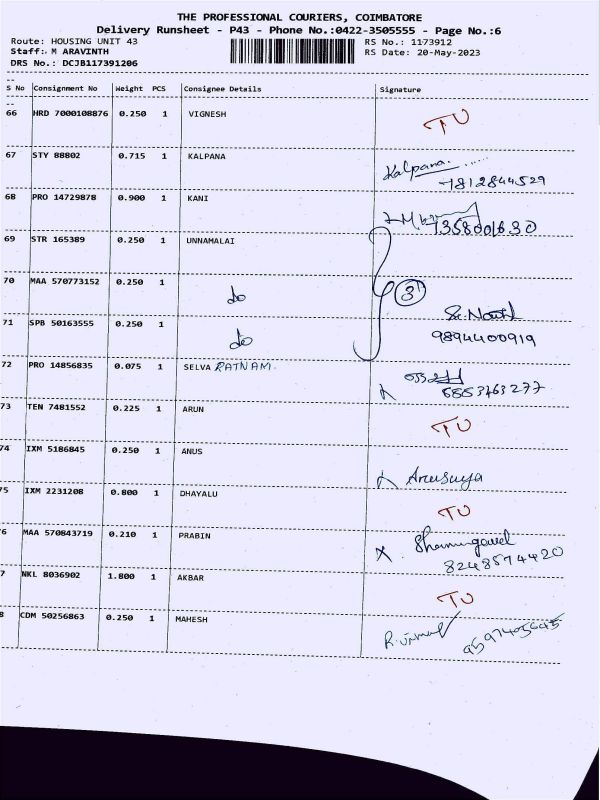 THE PROFESSIONAL COURIERS, COIMBATORE
Delivery Runsheet - P43 - Phone No.:0422-3505555 - Page No.:6
Route: HOUSING UNIT 43 RS No.: 1173912
Staff: M ARAVINTH RS Date: 20-May-2023
DRS No.: DCJB117391206
S No Consignment No Weight PCS Consignee Details Signature
66 HRD 7000108876 0.250 1 VIGNESH TU
67 STY 88802 0.715 1 KALPANA Kalpana.
7812844529
68 PRO 14729878 0.900 1 KANI
7358001630
69 STR 165389 0.250 1 UNNAMALAI
70 MAA 570773152 0.250 1 do 3
71 SPB 50163555 0.250 1 do
9894400919
72 PRO 14856835 0.075 1 SELVA RATNAM
73 TEN 7481552 0.225 1 ARUN TU
74 IXM 5186845 0.250 1 ANUS Anusuya
75 IXM 2231208 0.800 1 DHAYALU TU
6 MAA 570843719 0.210 1 PRABIN X. Shanmugavel
8248574420
7 NKL 8036902 1.800 1 AKBAR TU
8 CDM 50256863 0.250 1 MAHESH